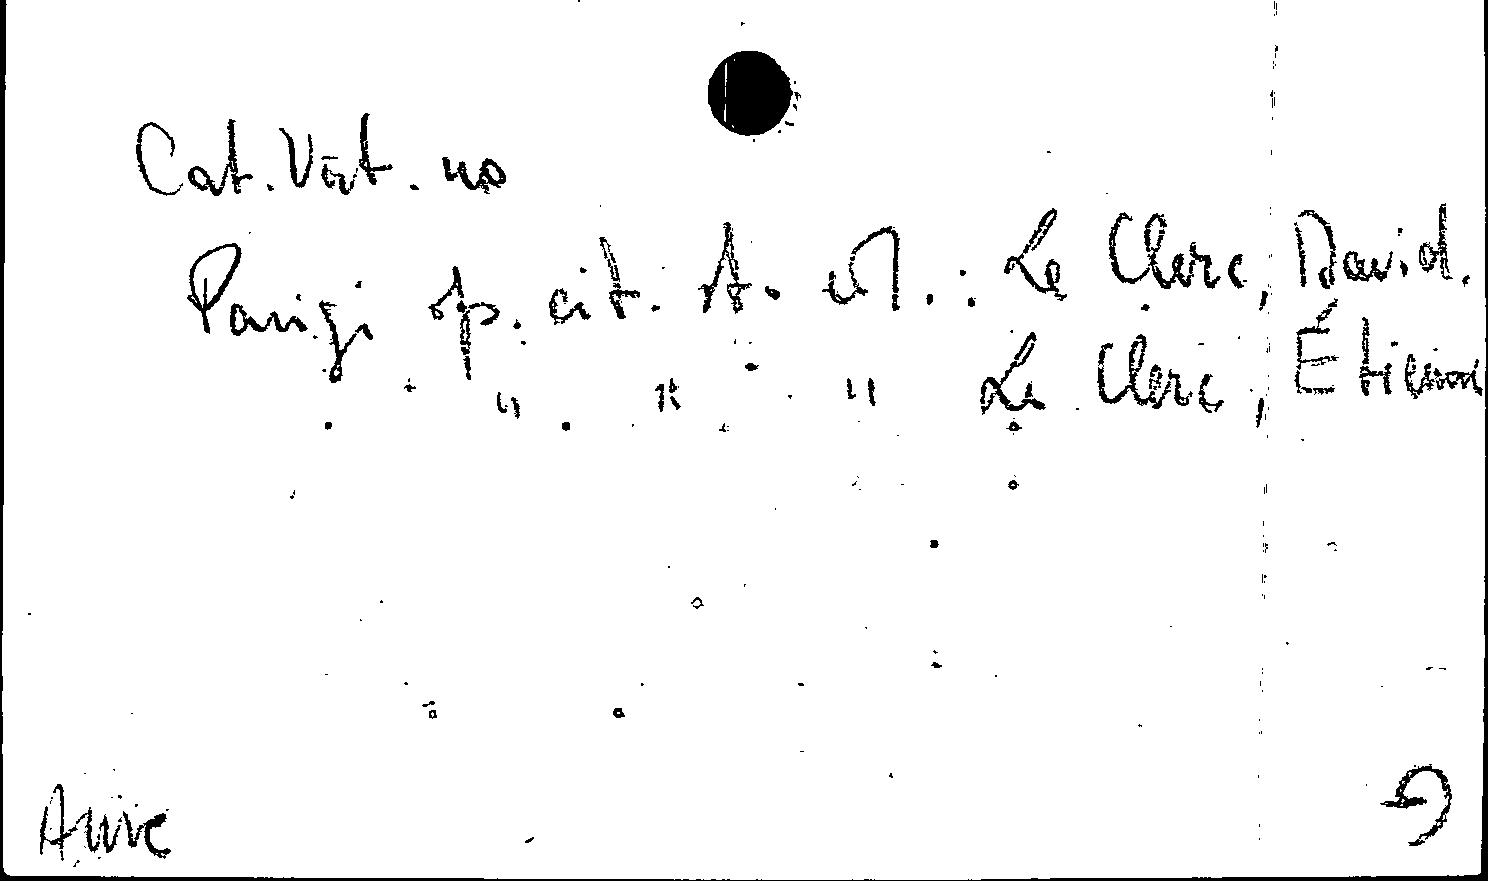 Cat. Vat. no
Parigi op. cit. A. et M.: Le Clerc, David.
" " " Le Clerc, Étienne